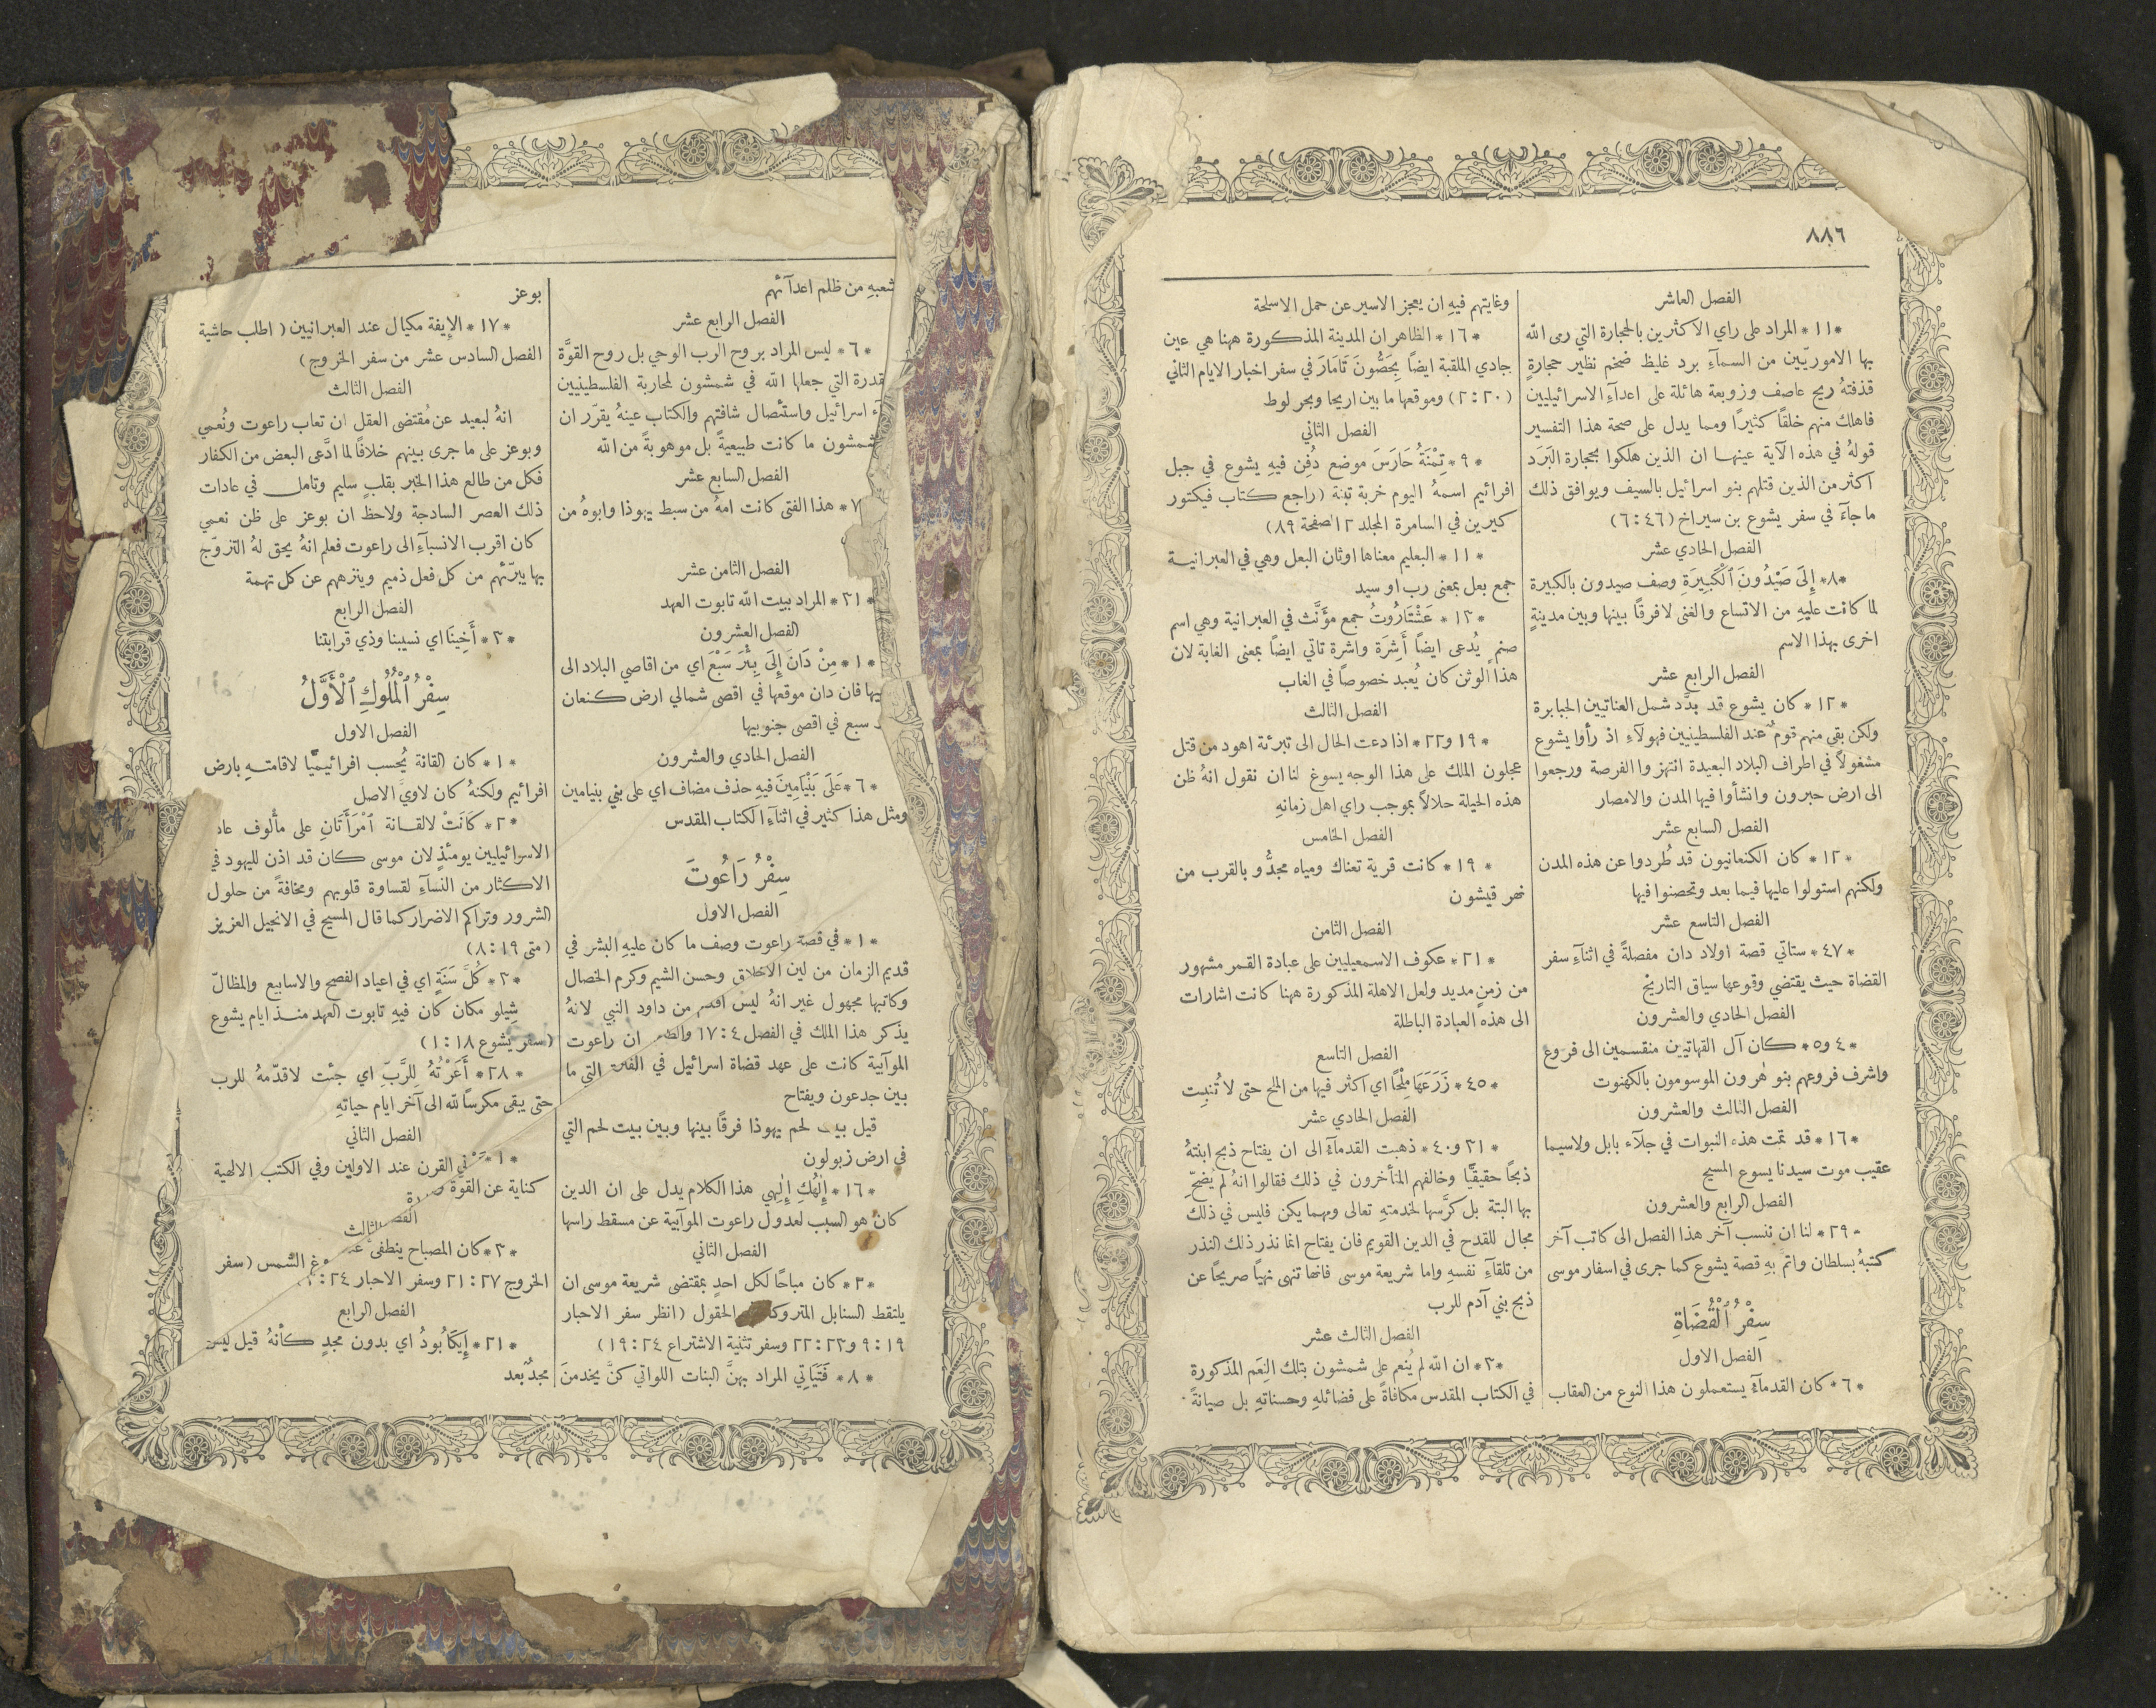 ٨٨٦
الفصل العاشر
*١١* المراد على راي الاكثرين بالحجارة التي رمى الله
بها الاموريّين من السمآءِ برد غليظ ضخم نظير حجارةٍ
قذفتهُ ريح عاصف وزوبعة هائلة على اعدآءِ الاسرائيليين
فاهلك منهم خلقًا كثيرًا ومما يدل على صحة هذا التفسير
قولهُ في هذه الآية عينها ان الذين هلكوا بحجارة البَرَد
اكثر من الذين قتلهم بنو اسرائيل بالسيف ويوافق ذلك
ما جآءَ في سفر يشوع بن سيراخ (٤٦:٦)
الفصل الحادي عشر
*٨* إِلَى صَيْدُونَ ٱلْكَبِيرَةِ وصف صيدون بالكبيرة
لما كانت عليهِ من الاتساع والغنى لا فرقًا بينها وبين مدينةٍ
اخرى بهذا الاسم
الفصل الرابع عشر
*١٢* كان يشوع قد بدَّد شمل العناتيين الجبابرة
ولكن بقي منهم قومٌ عند الفلسطينيين فهولآءِ اذ رأوا يشوع
مشغولاً في اطراف البلاد البعيدة انتهزوا الفرصة ورجعوا
الى ارض حبرون وانشأوا فيها المدن والامصار
الفصل السابع عشر
*١٢* كان الكنعانيون قد طُردوا عن هذه المدن
ولكنهم استولوا عليها فيما بعد وتحصنوا فيها
الفصل التاسع عشر
*٤٧* ستاتي قصة اولاد دان مفصلةً في اثنآءِ سفر
القضاة حيث يقتضي وقوعها سياق التاريخ
الفصل الحادي والعشرون
*٤ و٥* كان آل القهاتيين منقسمين الى فروع
واشرف فروعهم بنو هٰرون الموسومون بالكهنوت
الفصل الثالث والعشرون
*١٦* قد تمت هذه النبوات في جلآء بابل ولاسيما
عقيب موت سيدنا يسوع المسيح
الفصل الرابع والعشرون
*٢٩* لنا ان ننسب آخر هذا الفصل الى كاتب آخر
كتبهُ بسلطان واتمّ بهِ قصة يشوع كما جرى في اسفار موسى
سِفْرُ ٱلْقُضَاةِ
الفصل الاول
*٦* كان القدمآءُ يستعملون هذا النوع من العقاب
وغايتهم فيهِ ان يعجز الاسير عن حمل الاسلحة
*١٦* الظاهر ان المدينة المذكورة ههنا هي عين
جادي الملقبة ايضًا بِحَصُّونَ تَامَارَ في سفر اخبار الايام الثاني
(٢:٢٠) وموقعها ما بين اريحا وبحر لوط
الفصل الثاني
*٩* تِمْنَةُ حَارَسَ موضع دُفِن فيهِ يشوع في جبل
افرائيم اسمهُ اليوم خربة تبنة (راجع كتاب فيكتور
كيرين في السامرة المجلد ٢ الصفحة ٨٩)
*١١* البعليم معناها اوثان البعل وهي في العبرانية
جمع بعل بمعنى رب او سيد
*١٣* عَشْتَارُوتُ جمع مؤَنَّث في العبرانية وهي اسم
صنمٍ يُدعى ايضًا أَشِرَة واشرة تاتي ايضًا بمعنى الغابة لان
هذا الوثن كان يُعبد خصوصًا في الغاب
الفصل الثالث
*١٩ و٢٢* اذا دعت الحال الى تبرئة اهود من قتل
عجلون الملك على هذا الوجه يسوغ لنا ان نقول انهُ ظن
هذه الحيلة حلالاً بموجب راي اهل زمانهِ
الفصل الخامس
*١٩* كانت قرية تعناك ومياه مجدُّو بالقرب من
نهر قيشون
الفصل الثامن
*٢١* عكوف الاسمعيليين على عبادة القمر مشهور
من زمنٍ مديد ولعل الاهلة المذكورة ههنا كانت اشارات
الى هذه العبادة الباطلة
الفصل التاسع
*٤٥* زَرَعَهَا مِلْحًا اي اكثر فيها من الملح حتى لا تُنبِت
الفصل الحادي عشر
*٣١ و٤٠* ذهبت القدمآءُ الى ان يفتاح ذبح ابنتهُ
ذبحًا حقيقيًّا وخالفهم المتأخرون في ذلك فقالوا انهُ لم يُضحِّ
بها البتة بل كرَّسها لخدمتهِ تعالى ومهما يكن فليس في ذلك
مجال للقدح في الدين القويم فان يفتاح انما نذر ذلك النذر
من تلقآءِ نفسهِ واما شريعة موسى فانها تنهى نهيًا صريحًا عن
ذبح بني آدم للرب
الفصل الثالث عشر
*٣* ان الله لم يُنعم على شمشون بتلك النِعَم المذكورة
في الكتاب المقدس مكافاةً على فضائلهِ وحسناتهِ بل صيانةً
شعبهِ من ظلم اعدآئهم
الفصل الرابع عشر
*٦* ليس المراد بروح الرب الوحي بل روح القوَّة
قدرة التي جعلها الله في شمشون لمحاربة الفلسطينيين
آءَ اسرائيل واستئصال شافتهم والكتاب عينهُ يقرّر ان
شمشون ما كانت طبيعيةً بل موهوبةً من الله
الفصل السابع عشر
٧* هذا الفتى كانت امهُ من سبط يهوذا وابوهُ من
الفصل الثامن عشر
*٣١* المراد ببيت الله تابوت العهد
الفصل العشرون
*١* مِنْ دَانَ إِلَى بِئْرَ سَبْعَ اي من اقاصي البلاد الى
يها فان دان موقعها في اقصى شمالي ارض كنعان
سبع في اقصى جنوبيها
الفصل الحادي والعشرون
*٦* عَلَى بَنْيَامِينَ فيهِ حذف مضاف اي على بني بنيامين
ومثل هذا كثير في اثنآءِ الكتاب المقدس
سِفْرُ رَاعُوتَ
الفصل الاول
*١* في قصة راعوت وصف ما كان عليهِ البشر في
قديم الزمان من لين الاخلاق وحسن الشيم وكرم الخصال
وكاتبها مجهول غير انهُ ليس اقدم من داود النبي لانهُ
يذكر هذا الملك في الفصل ٤:١٧ ان راعوت
الموآبية كانت على عهد قضاة اسرائيل في التي ما
بين جدعون ويفتاح
قيل لحم يهوذا فرقًا بينها وبين بيت لحم التي
في ارض زبولون
*١٦* إِلٰهُكِ إِلٰهِي هذا الكلام يدل على ان الدين
كان هو السبب لعدول راعوت الموآبية عن مسقط راسها
الفصل الثاني
*٣* كان مباحًا لكل احدٍ بمقتضى شريعة موسى ان
يلتقط السنابل الحقول (انظر سفر الاحبار
١٩:٩ و٢٣:٢٢ وسفر تثنية الاشتراع ٢٤:١٩)
*٨* فَتَيَاتِي المراد بهنَّ البنات اللواتي كنَّ يخدمنَ
بوعز
*١٧* الإِيفة مكيال عند العبرانيين (اطلب حاشية
الفصل السادس عشر من سفر الخروج)
الفصل الثالث
انهُ لبعيد عن مُقتضى العقل ان تعاب راعوت ونُعمي
وبوعز على ما جرى بينهم خلافًا لما ادَّعى البعض من الكفار
فكل من طالع هذا الخبر بقلبٍ سليم وتامل في عادات
ذلك العصر الساذجة ولاحظ ان بوعز على ظن نعمي
كان اقرب الانسبآءِ الى راعوت فعلم انهُ يحق لهُ التزوّج
بها يبرّئهم من كل فعل ذميم وينزههم عن كل تهمة
الفصل الرابع
*٣* أَخِينَا اي نسيبنا وذي قرابتنا
سِفْرُ ٱلْمُلُوكِ ٱلْأَوَّلُ
الفصل الاول
*١* كان القانة يُحسب افرائيميًّا لاقامتهِ بارض
افرائيم ولكنهُ كان لاويّ الاصل
*٢* كَانَتْ لالقانة ٱمْرَأَتَانِ على مأْلوف عاد
الاسرائيليين يومئذٍ لان موسى كان قد اذن لليهود في
الاكثار من النسآءِ لقساوة قلوبهم ومخافةً من حلول
الشرور وتراكم الاضرار كما قال المسيح في الانجيل العزيز
(متى ١٩:٨)
*٣* كُلَّ سَنَةٍ اي في اعياد الفصح والاسابيع والمظالّ
شِيلو مكان كان فيهِ تابوت العهد منذ ايام يشوع
(سفر يشوع ١٨:١)
*٢٨* أَعَرْتُهُ لِلرَّبِّ اي جئت لاقدّمهُ للرب
حتى يبقى مكرسًا لله الى آخر ايام حياتهِ
الفصل الثاني
*١* القرن عند الاولين وفي الكتب الالهية
كناية عن القوَّة
الثالث
*٣* كان المصباح ينطفئ الشمس (سفر
الخروج ٢٧:٢١ وسفر الاحبار ٢٤:
الفصل الرابع
*٢١* إِيكَابُودُ اي بدون مجدٍ كأَنهُ قيل ليس
مجدٌ بعد